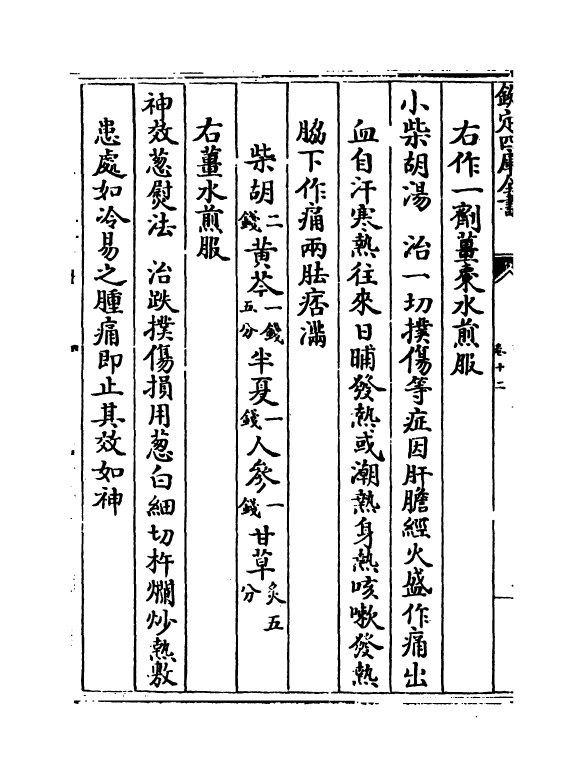 欽定四庫全書
卷十二
右作一劑薑棗水煎服
小柴胡湯 治一切撲傷等症因肝膽經火盛作痛出
血自汗寒熱往來日晡發熱或潮熱身熱咳嗽發熱
脇下作痛兩胠痞滿
柴胡二錢黄芩一錢五分半夏一錢人參一錢甘草炙五分
右薑水煎服
神效葱熨法 治跌撲傷損用葱白細切杵爛炒熱敷
患處如冷易之腫痛即止其效如神